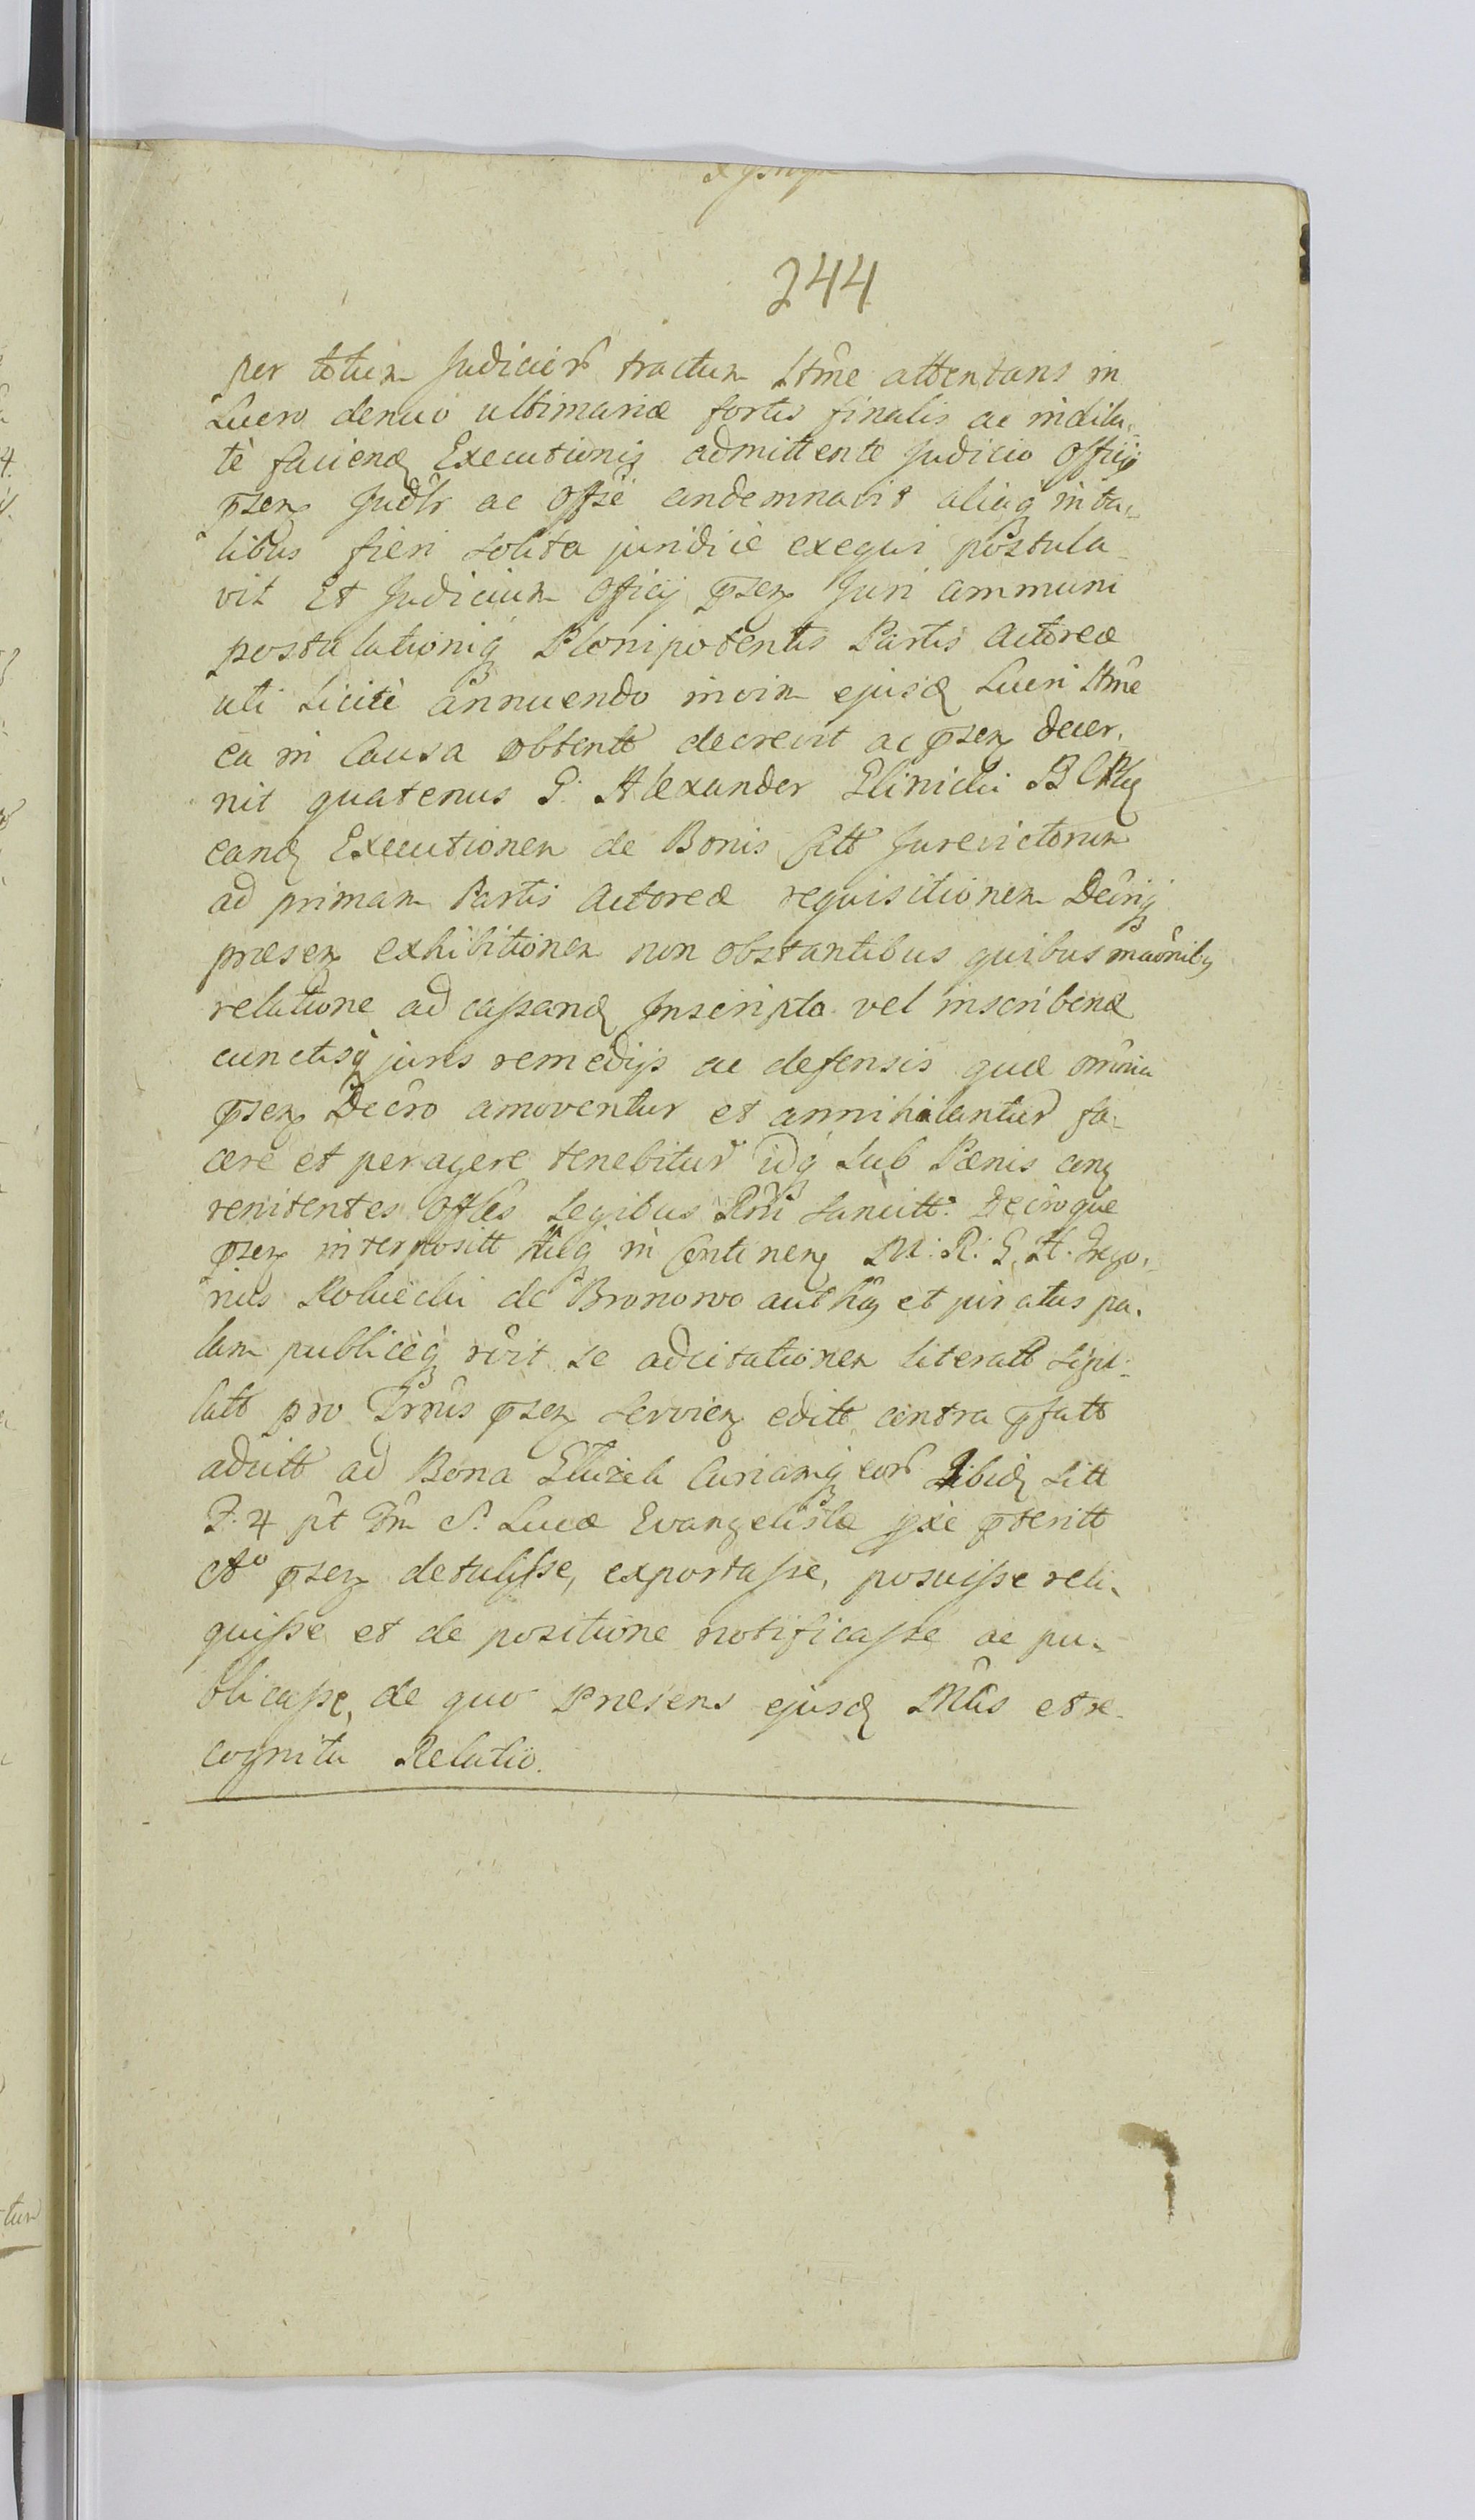 244
per totum Judicior tractum Ltme attentans in
Lucro denuo ultimariæ fortis finalis ac indila-
tè faciend Executionis admittente Judicio Officij
psen Judlr ac Offse condemnavit aliaq in ta-
libus fieri solita juridicè exequi postula-
vit Et Judicium Officij psen Juri communi
postulationiq Plenipotentis Partis Actoreæ
uti licitè annuendo in vim ejusd Lucri Ltme
ea in Causa obtentt decrevit ac psen decer-
nit quatenus G. Alexander Glinicki B C
eand Executionem de Bonis Citt Jurevictorum
ad primam Partis Actoreæ requisitionem Decriq
præsen exhibitionem non obstantibus quibus maonibq
relatione ad cassand Inscripta vel inscribend
cunctisq juris remedijs ac defensis quæ omnia
psen Decro amoventur et annihilantur fa-
cere et peragere tenebitur idq sub Pænis con
renitentes Offles Legibus Rni sancitt. Decroque
psen interpositt in Continen M. R. G. H. Grego-
rius de Bronowo authen et juratus pa-
lam publicèq rvit se adcitationem literatt sigil-
latt pro Trmis psen servien editt contra pfatt
adcitt ad Bona Curiamq eor ibid sitt
F. 4 pt Fm S. Lucæ Evangelistæ pxe pteritt
Ao psen detulisse, exportasse, posuisse reli-
quisse et de positione notificasse ac pu-
blicasse, de quo Præsens ejusd Mlis est re-
cognita Relatio.